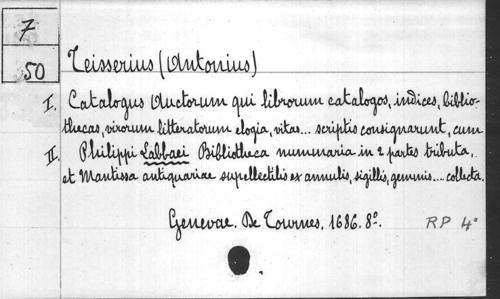 7
50
Teisserius (Antonius)
I. Catalogus Auctorum qui librorum catalogos, indices, biblio-
thecas, virorum litteratorum elogia, vitas... scriptis consignarunt, cum
II. Philippi Labbaei Bibliotheca nummaria in 2 partes tributa,
et Mantissa antiquariae supellectilis ex annulis, sigillis, gemmis.... collecta.
Genevae. De Tournes, 1686. 8º.
RP 4º